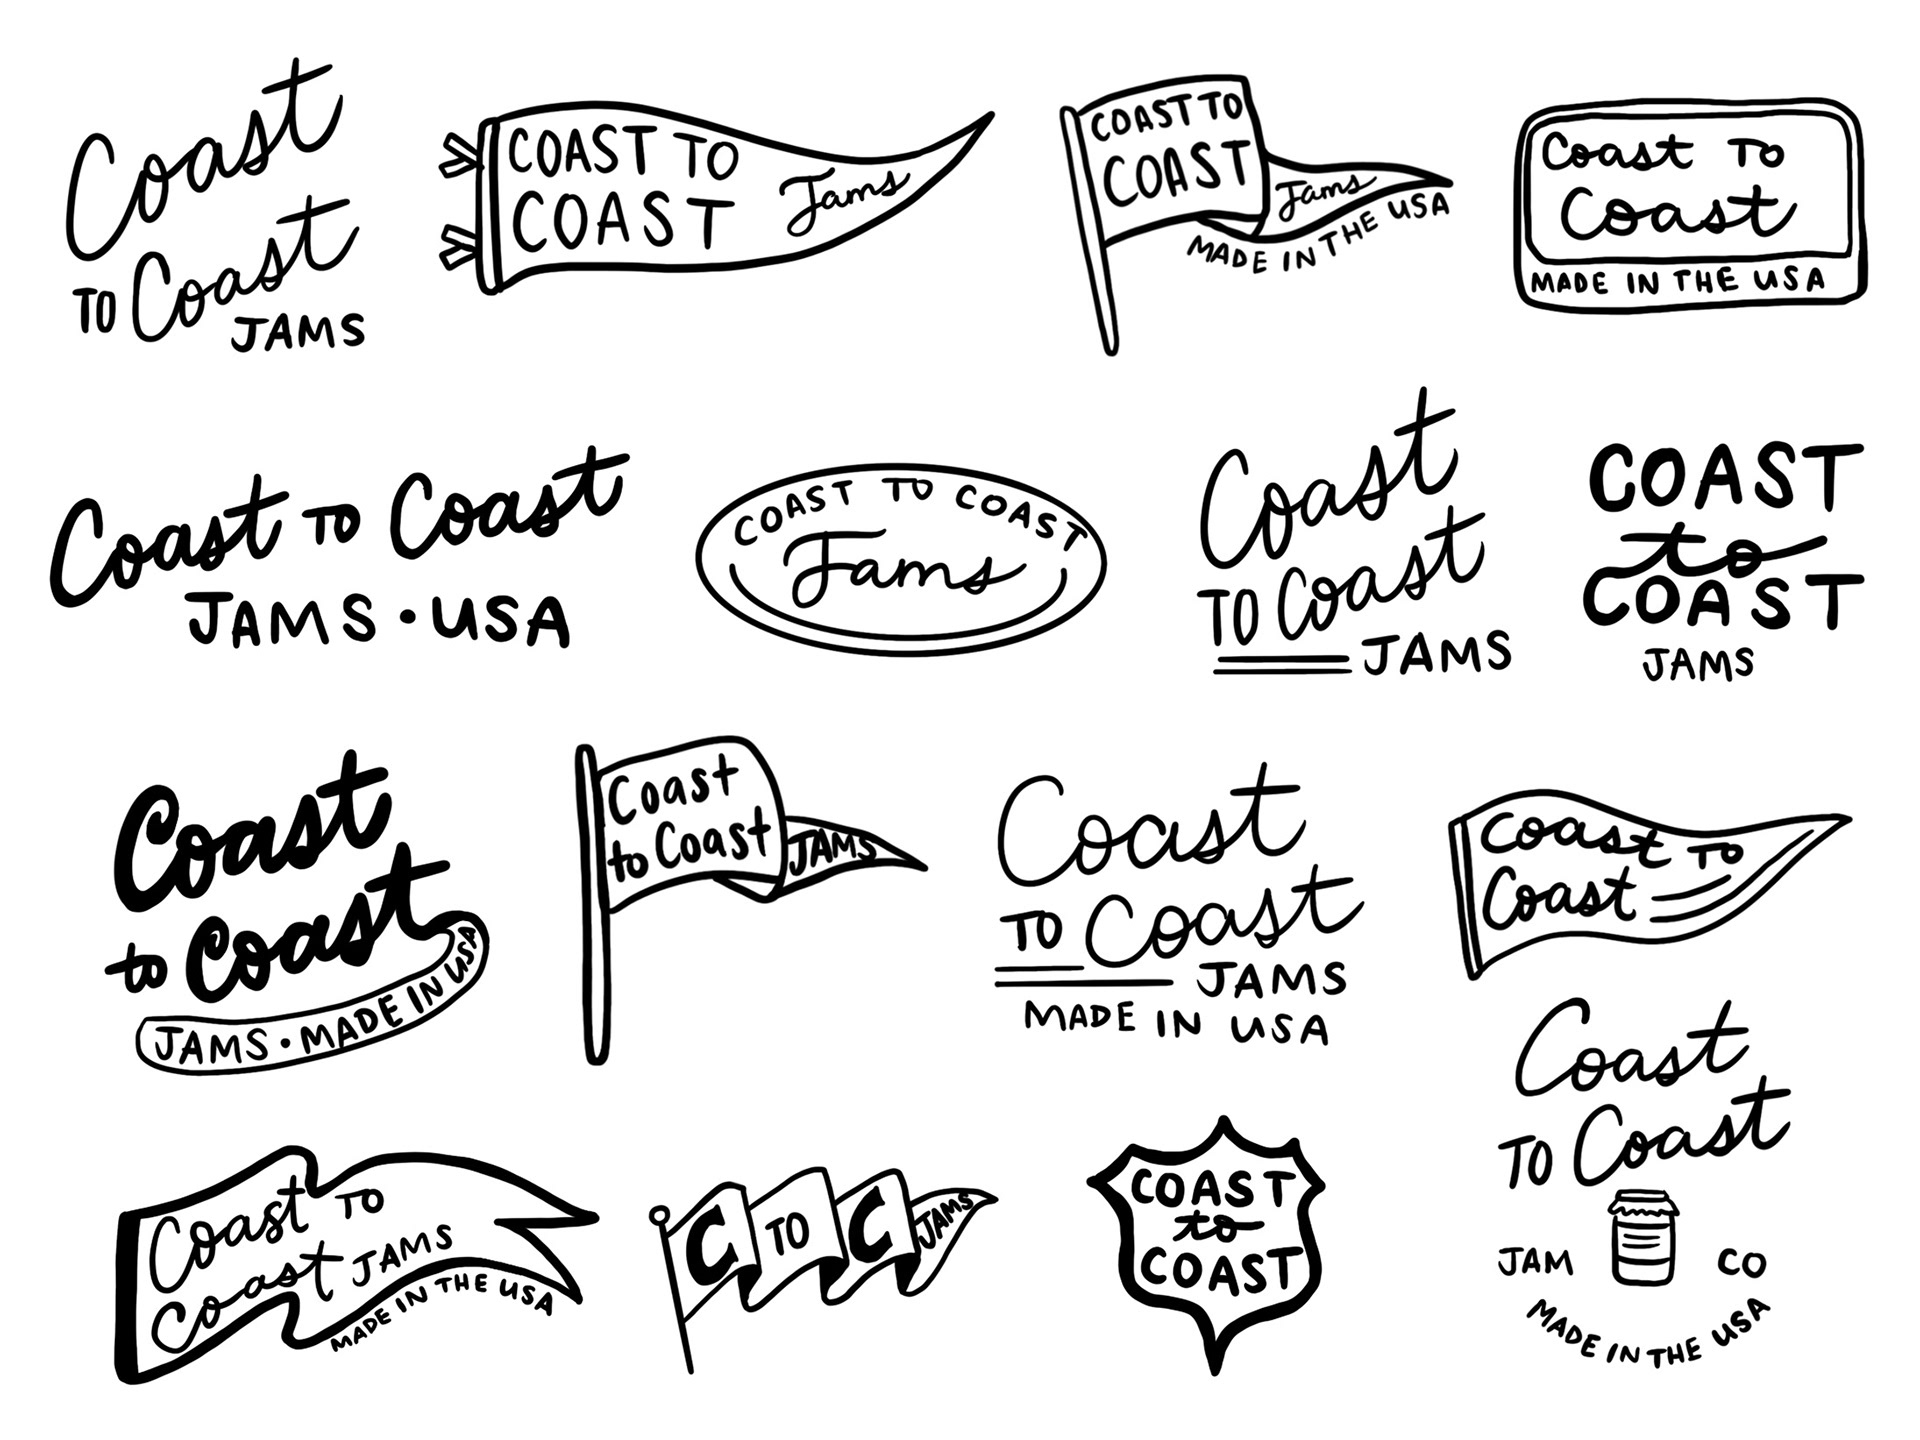 Coast
TO Coast
JAMS
COAST TO
COAST
Jams
COAST TO
COAST
Jams
MADE IN THE USA
Coast TO
Coast
MADE IN THE USA
Coast TO Coast
JAMS • USA
COAST TO COAST
Jams
Coast
TO Coast
JAMS
COAST
to
COAST
JAMS
Coast
to Coast
JAMS • MADE IN USA
Coast
to Coast
JAMS
Coast
TO Coast
JAMS
MADE IN USA
Coast TO
Coast
Coast TO
Coast JAMS
MADE IN THE USA
C TO C JAMS
COAST
to
COAST
Coast
TO Coast
JAM CO
MADE IN THE USA